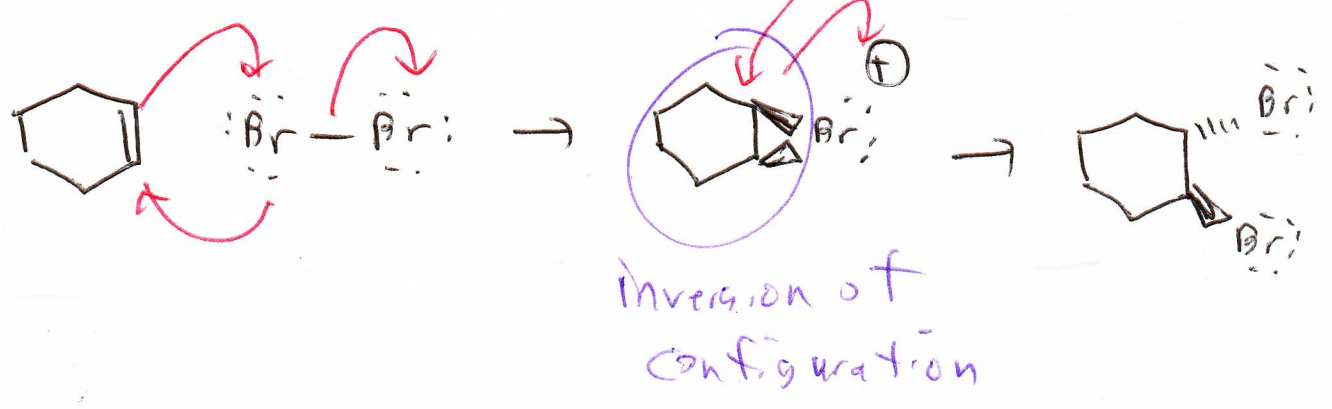 :Br — Br: → Br: + → Br:
Br:
inversion of
configuration